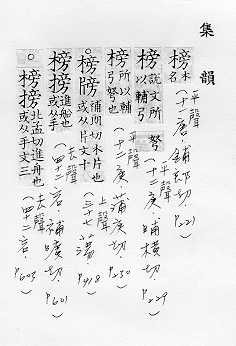 集韻
榜 木名 平聲(十一唐.鋪郎切.P.221)
榜 說文所以輔弓弩 平聲(十二庚.晡橫切.P.229)
榜 所以輔弓弩也 平聲(十二庚.蒲庚切.P.230)
榜牓 補朗切木片也或从片文十 上聲(三十七蕩.P.418)
榜搒 進船也或从手 去聲(四十二宕.補曠切.P.601)
榜搒 北孟切進舟也或从手文三 去聲(四